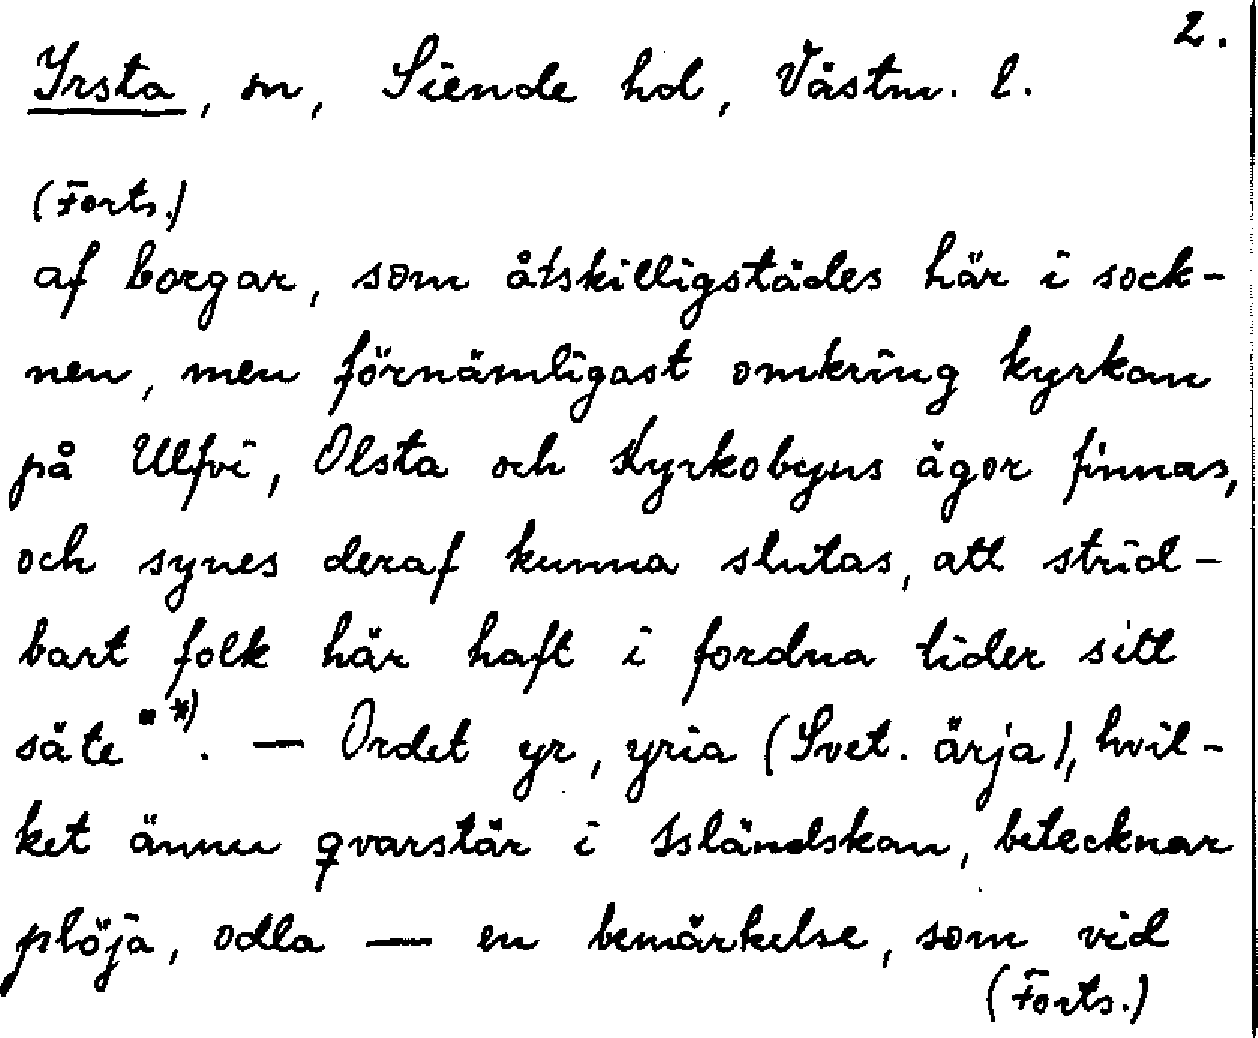 2.
Irsta, sn, Siende hd, Västm. l.
(Forts.)
af borgar, som åtskilligstädes här i sock-
nen, men förnämligast omkring kyrkan
på Ulfvi, Olsta och Kyrkobyns ägor finnas,
och synes deraf kunna slutas, att strid-
bart folk här haft i fordna tider sitt
säte" *). — Ordet yr, yria (Svet. ärja), hvil-
ket ännu qvarstår i Isländskan, betecknar
plöja, odla — en bemärkelse, som vid
(Forts.)